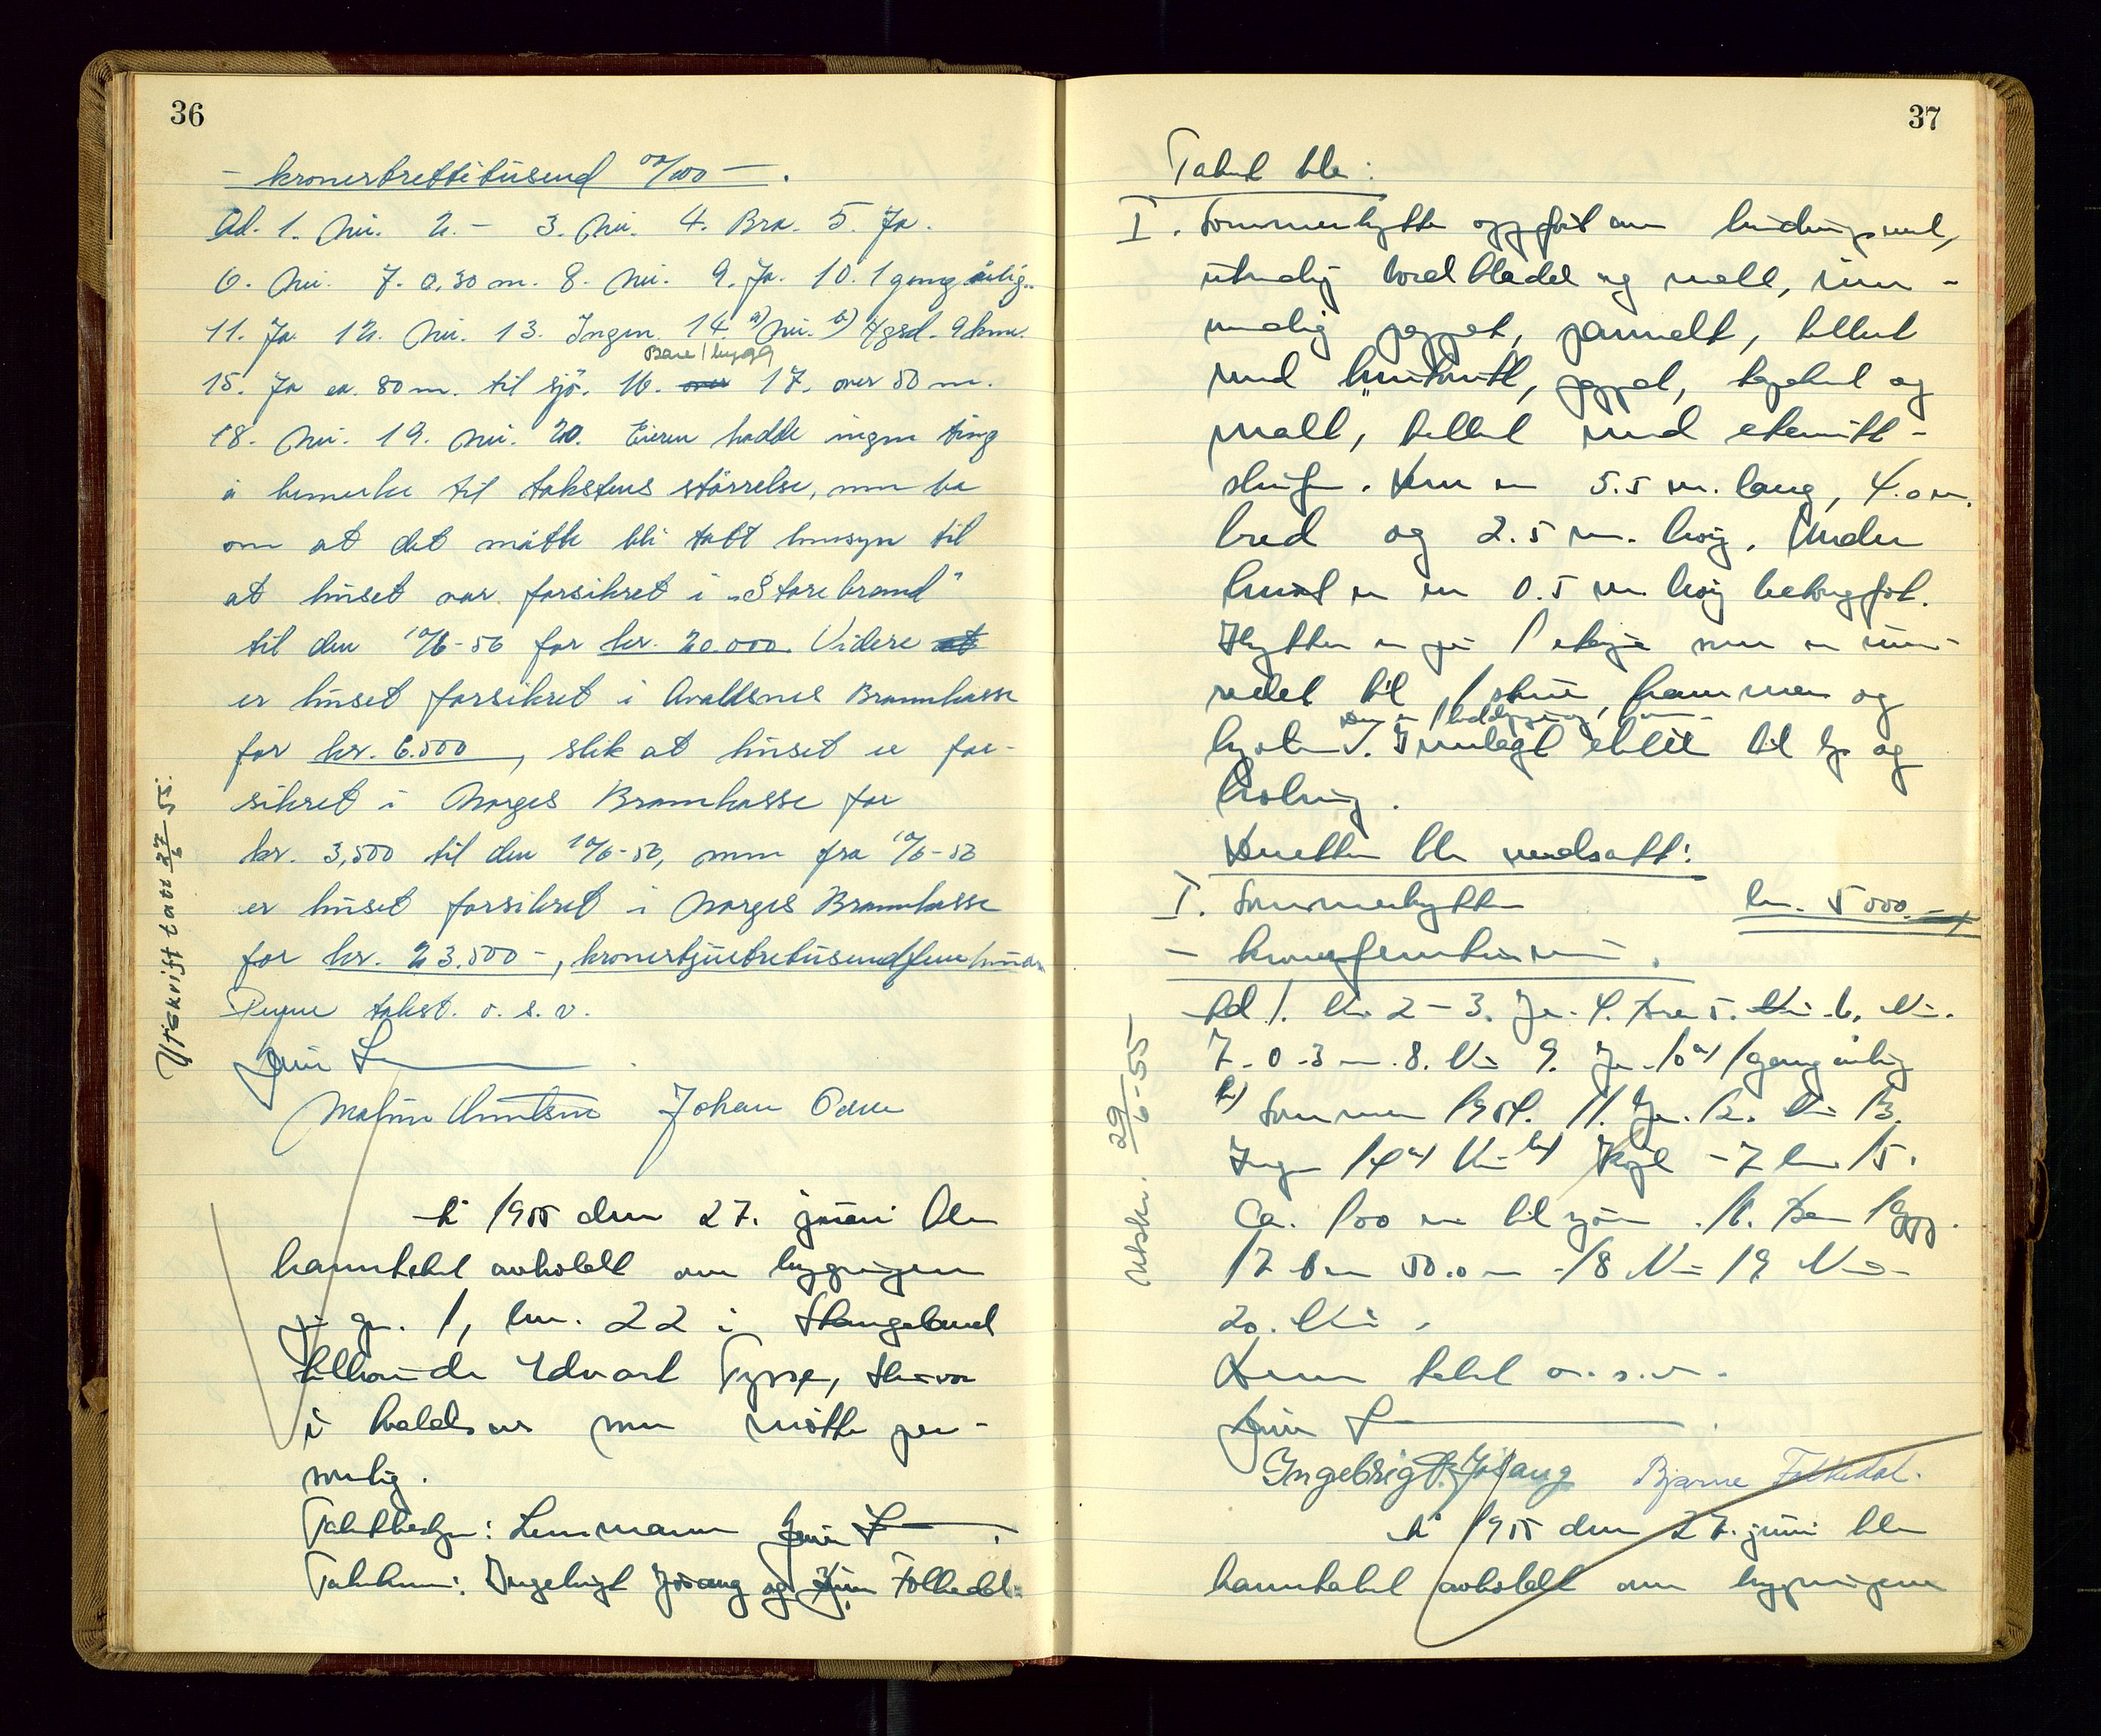 36
- kronertrettitusend 00/100 - .
Ad. 1. Nei. 2. - 3. Nei. 4. Bra. 5. Ja.
6. Nei. 7. 0,30 m. 8. Nei. 9. Ja. 10. 1 gang årlig.
11. Ja. 12. Nei. 13. Ingen. 14. a) Nei. b) 9 km.
Bare 1 bygg
15. Ja ca. 80 m. til sjø. 16. over 17. over 50 m.
18. Nei. 19. Nei. 20. Eieren hadde ingen ting
å bemerke til takstens størrelse, men ba
om at det måtte bli tatt hensyn til
at huset var forsikret i "Storebrand"
til den 10/6-56 for kr. 20.000. Videre
er huset forsikret i Avaldsnes Brannkasse
for kr. 6.500, slik at huset er for-
sikret i Norges Brannkasse for
kr. 3,500 til den 10/6-56, men fra 10/6-56
er huset forsikret i Norges Brannkasse
for kr. 23.500 -, kronertjuetretusendfemhundre
Denne takst. o. s. v.
Johan
Utskrift tatt 27/6 55.
År 1955 den 27. juni ble
branntakst avholdt over bygningene
på gr. 1, bn. 22 i Stangeland
tilhørende Edvart
i Avaldsnes som møtte per-
sonlig.
Takstbestyr: Lensmann
Takstmenn: Ingebrigt Jøsang og Folkedal.
37
Takst ble:
I. Sommerhytte oppført av bindingsverk,
utvendig bordkledd og malt, inn-
vendig pappet, panelt, tekket
med pappet, tapetsert og
malt, tekket med eternitt-
skifer. Den er 5.5 m. lang, 4.0 m.
bred og 2.5 m. høy. Under
huset er en 0.5 m høy betongfot.
Hytten er på 1 etasje som er inn-
redet til 1 stue, kammer og
Innlagt elektr. til lys og
kokning.
Den ble verdsatt:
I. Sommerhytten kr. 5000.-
- kronerfemtusen - .
Ad 1. Nei 2 - 3. Ja. 4. Bra 5. Nei. 6. Nei.
7. 0.3 m. 8. Nei 9. Ja. 10 a) 1 gang årlig
b) Sommer 1954. 11. Ja. 12. Nei 13.
Ingen 14 a) Nei b) - 7 km 15.
Ca. 100 m til sjøen. 16. Bare 1 bygg.
17. Over 50.0 m - 18 Nei 19 Nei -
20. Nei.
Denne takst o.s.v.
Ingebrigt Jøsang Bjarne Folkedal.
utskr. 29/6-55
År 1955 den 27. juni ble
branntakst avholdt over bygningene